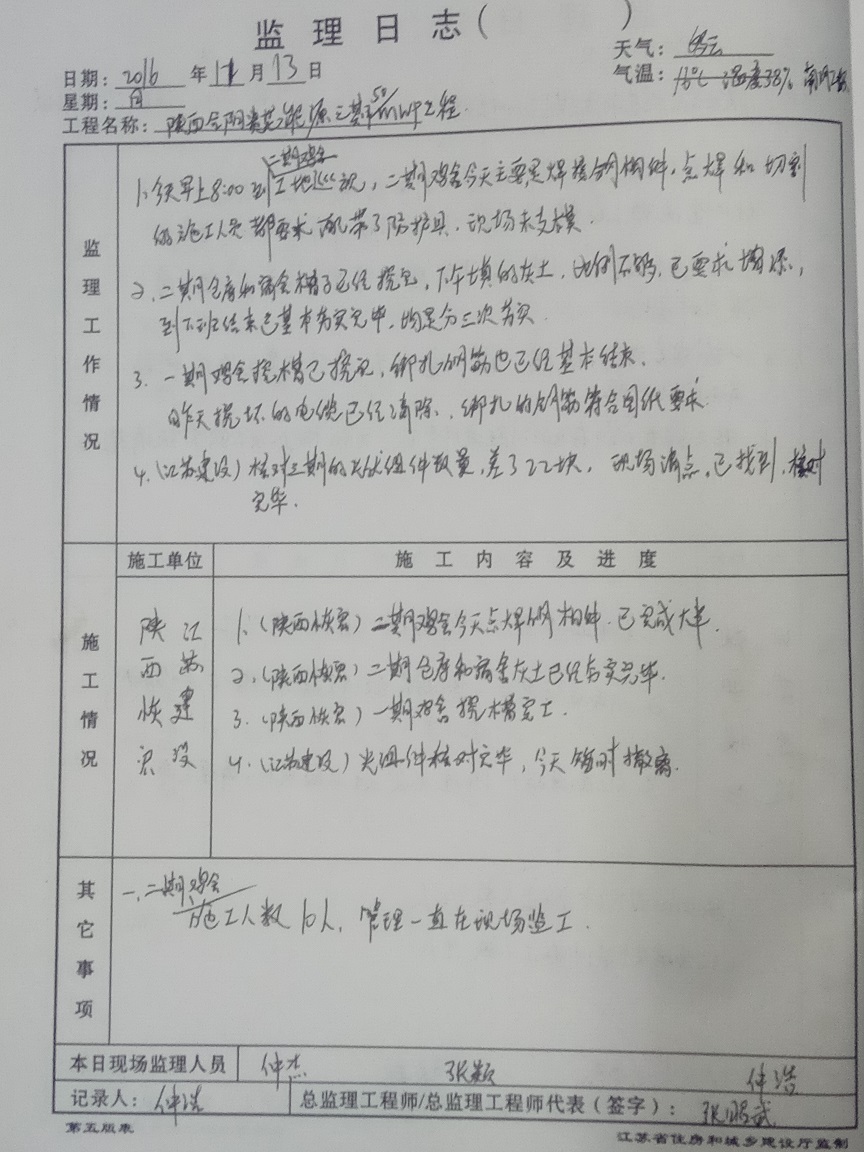 监理日志（ ）
天气：多云
日期：2016年11月13日
气温：13℃ 湿度38%
星期：日
工程名称：陕西合阳 能源二期50MWP工程
监理工作情况
二期鸡舍
1、今天早上8:00到工地巡视，二期鸡舍今天主要是焊接钢构件，点焊和切割
的施工人员都要求配带了防护具，现场未支模．
2、二期仓库和宿舍槽子已经挖完，下午填的灰土，比例不够，已要求增添，
到下班结束已基本夯实完毕，均是分三次夯实．
3．一期鸡舍挖槽已挖完，绑扎钢筋也已经基本结束．
昨天挖坏的电缆已经清除，绑扎的钢筋符合图纸要求
4．（江苏建设）核对二期的光伏组件数量，差了22块，现场清点，已找到，核对
完毕．
施工单位
施工内容及进度
施工情况
陕西恢宏
江苏建设
1、（陕西恢宏）二期鸡舍今天点焊钢构件．已完成大半．
2、（陕西恢宏）二期仓库和宿舍灰土已经夯实完毕．
3．（陕西恢宏）一期鸡舍挖槽完工．
4．（江苏建设）光组件核对完毕，今天暂时撤离．
其它事项
一、二期鸡舍
施工人数10人，管理一直在现场监工．
本日现场监理人员
仲杰 张颖 仲浩
记录人：仲浩
总监理工程师/总监理工程师代表（签字）：张鹏武
第五版表
江苏省住房和城乡建设厅监制